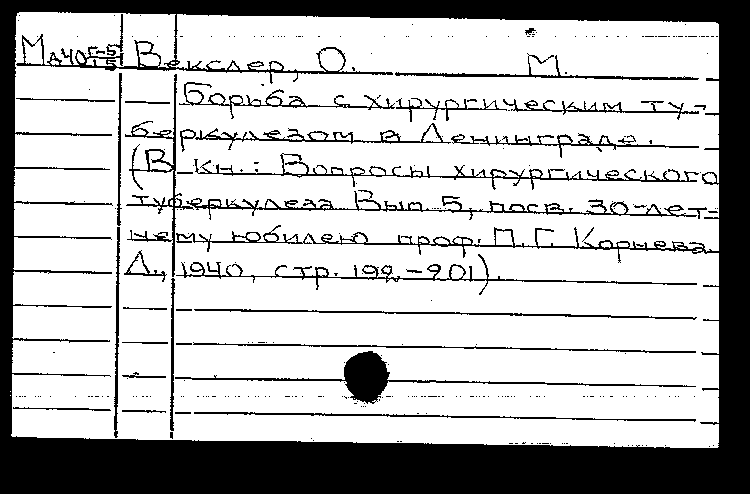 Мд40 Г-5/1-5 Векслер, О. М.
Борьба с хирургическим ту-
беркулезом в Ленинграде.
(В кн.: Вопросы хирургического
туберкулеза Вып 5, посв. 30-лет-
нему юбилею проф. П.Г. Корнева.
Л., 1940, стр. 192-201).